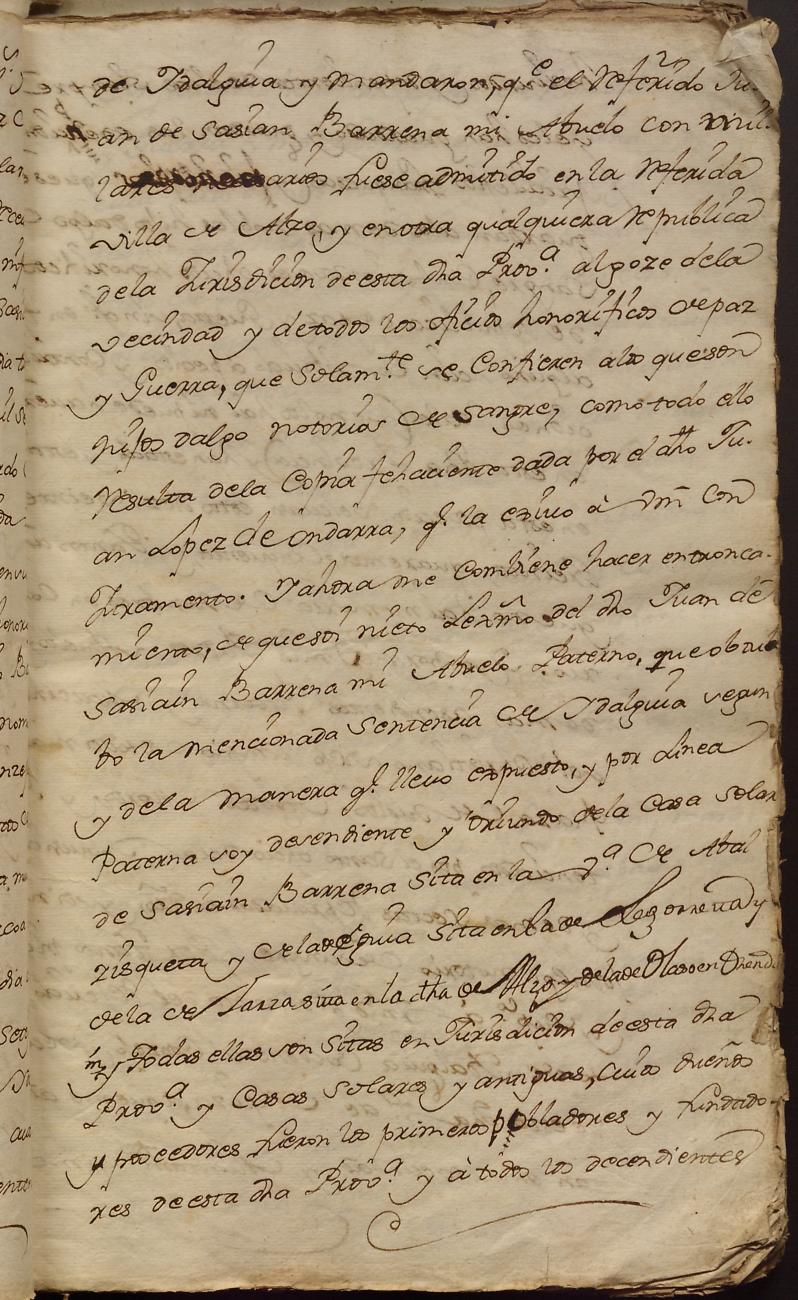 de Ydalguia y mandaron, q.e el Referido Ju-
an de Sasiain Barrena mi Abuelo con mill
lares arios fuese admitido en la Referida
Villa de Alzo, y en otra qualquiera Republica
de la Jurisdicion de esta dha Prov.a al goze de la
vecindad y de todos los oficios honorificos de paz
y Guerra, que Solam.te se Confieren alos que son
hijos dalgo notorios de Sangre, como todo ello
Resulta de la Copia fehaciente dada por el dho Ju-
an Lopez de ondarra, q.e la envio à Vm con
Juramento. Y ahora me Combiene hacer entronca-
miento, de que soi nieto Lexmo del dho Juan de
Sasiain Barrena mi Abuelo Paterno, que obtub
bo la mencionada Sentencia de Ydalguia segun
y de la manera q.e llevo expuesto, y por Linea
Paterna soy desendiente y oriundo de la Casa Solar
de Sasiain Barrena Sita en la V.a de Abal
zisqueta y de la de Eguia Sita en la de Legorreta y
de la de Iarza sita en la dha de Alzo y de la de Olaso en Orendi
in y Todas ellas son Sitas en Jurisdicion de esta dha
Prov.a y Casas Solares y antiguas, cuios dueños
y poseedores fueron los primeros pobladores y fundado-
res de esta dha Prov.a y à todos los decendientes